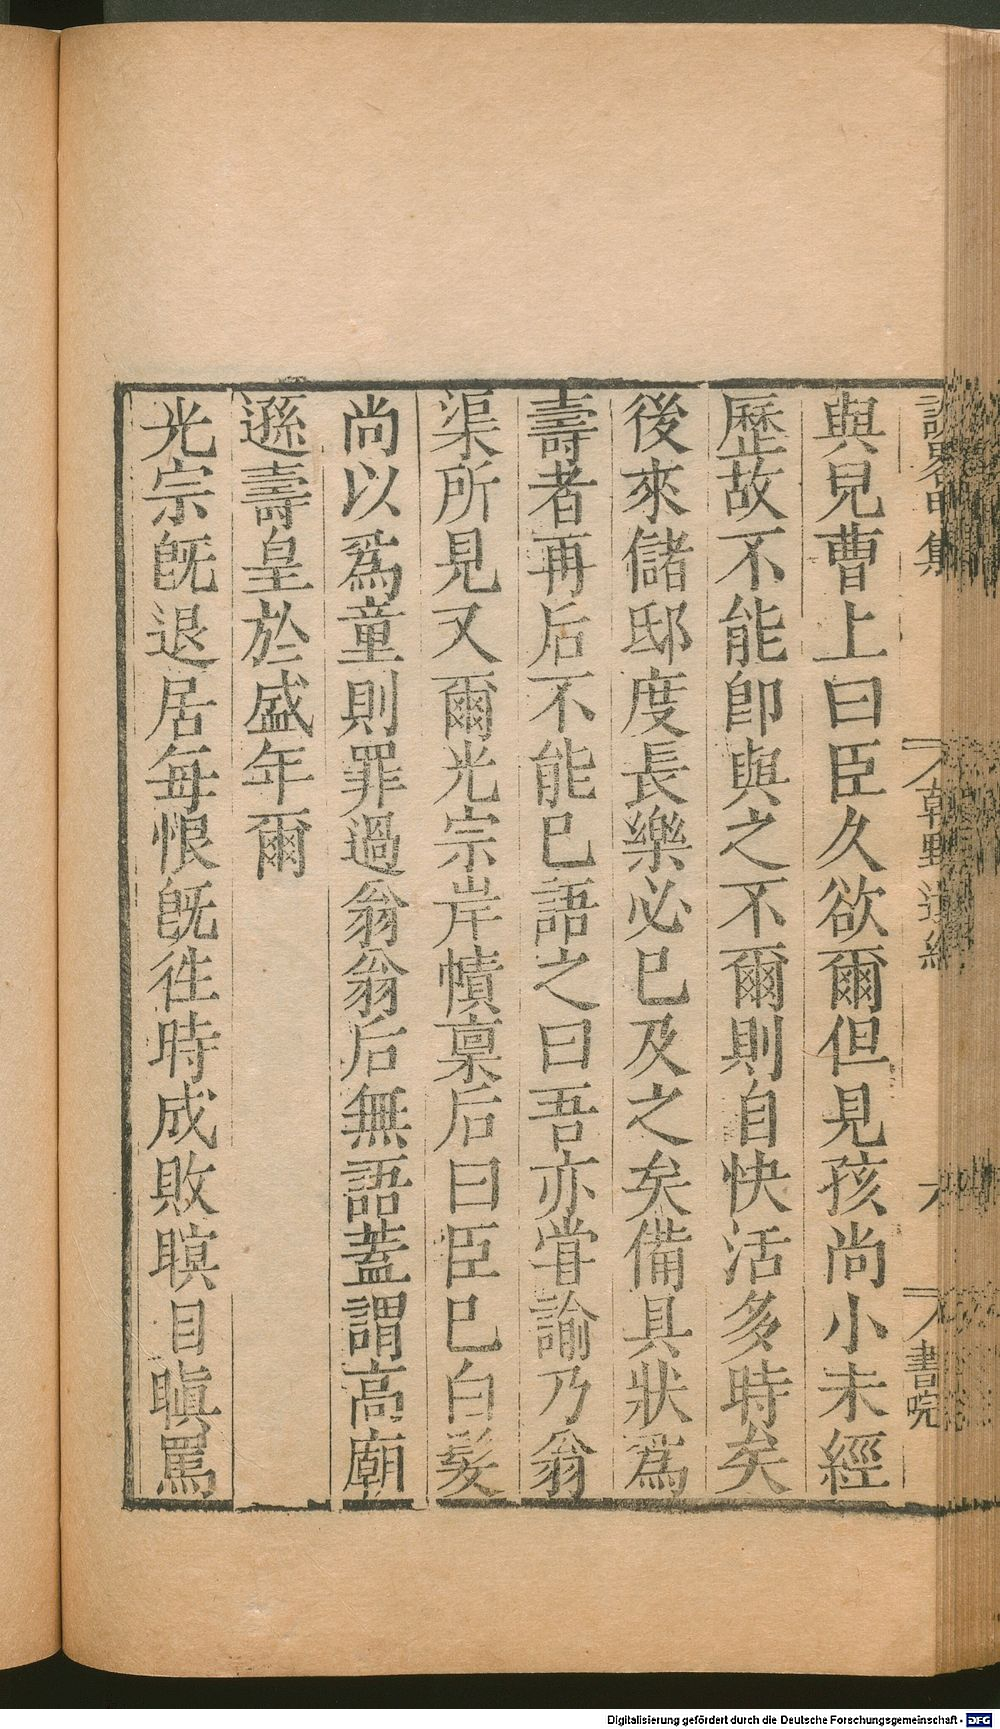 與兒曹上曰臣久欲爾但見孩尚小未經
歷故不能卽與之不爾則自快活多時矣
後來儲邸度長樂必已及之矣備具狀爲
壽者再后不能已語之曰吾亦嘗諭乃翁
渠所見又爾光宗岸幘稟后曰臣已白髮
尚以爲童則罪過翁翁后無語蓋謂高廟
遜壽皇於盛年爾
光宗旣退居每恨旣徃時成敗瞑目瞋罵
集
書院
Digitalisierung gefördert durch die Deutsche Forschungsgemeinschaft - DFG